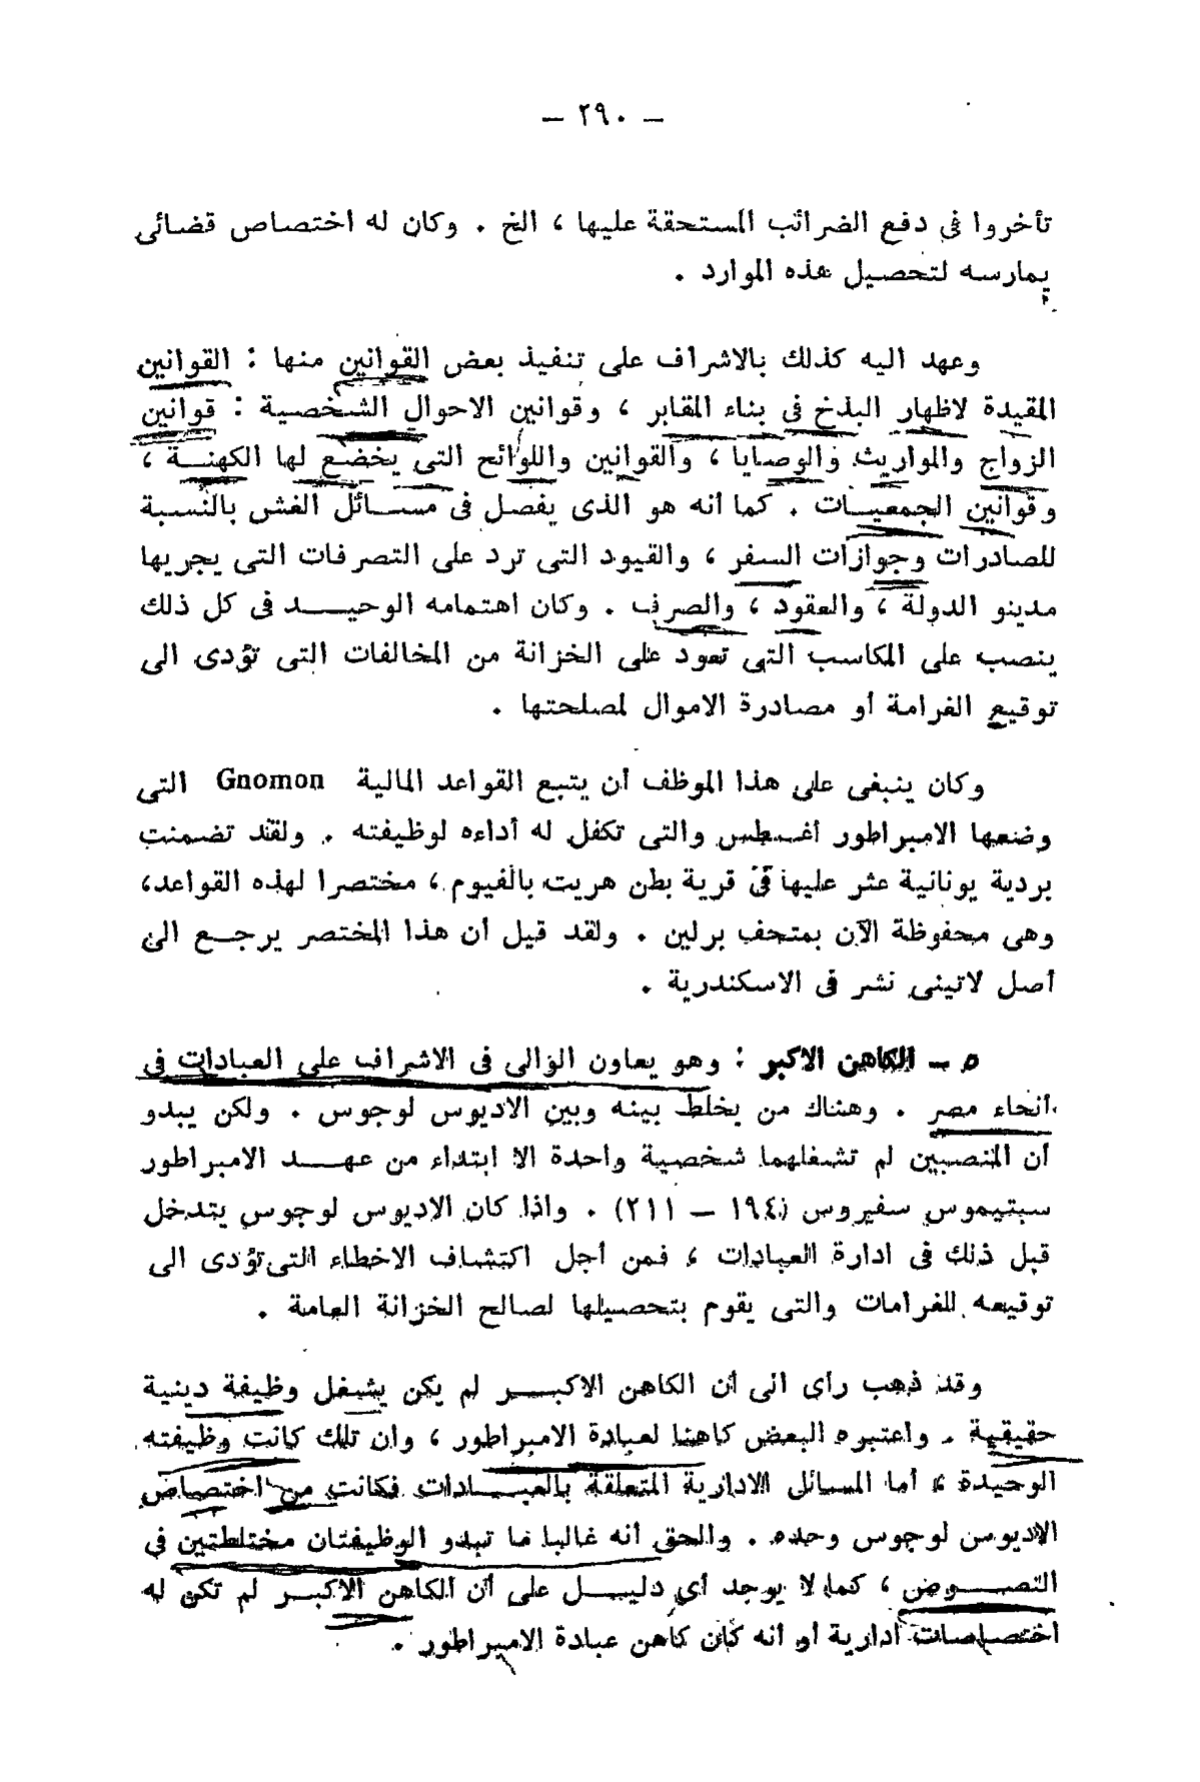 — ٢٩٠ —
تأخروا فى دفع الضرائب المستحقة عليها ، الخ . وكان له اختصاص قضائى
يمارسه لتحصيل هذه الموارد .
وعهد اليه كذلك بالاشراف على تنفيذ بعض القوانين منها : القوانين
المقيدة لاظهار البذخ فى بناء المقابر ، وقوانين الاحوال الشخصية : قوانين
الزواج والمواريث والوصايا ، والقوانين واللوائح التى يخضع لها الكهنة ،
وقوانين الجمعيات . كما أنه هو الذى يفصل فى مسائل الغش بالنسبة
للصادرات وجوازات السفر ، والقيود التى ترد على التصرفات التى يجريها
مدينو الدولة ، والعقود ، والصرف . وكان اهتمامه الوحيد فى كل ذلك
ينصب على المكاسب التى تعود على الخزانة من المخالفات التى تؤدى الى
توقيع الغرامة أو مصادرة الاموال لمصلحتها .
وكان ينبغى على هذا الموظف أن يتبع القواعد المالية Gnomon التى
وضعها الامبراطور أغسطس والتى تكفل له أداءه لوظيفته . ولقد تضمنت
بردية يونانية عثر عليها فى قرية بطن هريت بالفيوم ، مختصرا لهذه القواعد،
وهى محفوظة الآن بمتحف برلين . ولقد قيل أن هذا المختصر يرجع الى
أصل لاتينى نشر فى الاسكندرية .
٥ — الكاهن الاكبر : وهو يعاون الوالى فى الاشراف على العبادات فى
أنحاء مصر . وهناك من يخلط بينه وبين الاديوس لوجوس . ولكن يبدو
أن المنصبين لم تشغلهما شخصية واحدة الا ابتداء من عهد الامبراطور
سبتيموس سفيروس (١٩٤ — ٢١١) . واذا كان الاديوس لوجوس يتدخل
قبل ذلك فى ادارة العبادات ، فمن أجل اكتشاف الاخطاء التى تؤدى الى
توقيعه للغرامات والتى يقوم بتحصيلها لصالح الخزانة العامة .
وقد ذهب رأى الى أن الكاهن الاكبر لم يكن يشغل وظيفة دينية
حقيقية . واعتبره البعض كاهنا لعبادة الامبراطور ، وان تلك كانت وظيفته
الوحيدة ، أما المسائل الادارية المتعلقة بالعبادات فكانت من اختصاص
الاديوس لوجوس وحده . والحق أنه غالبا ما تبدو الوظيفتان مختلطتين فى
النصوص ، كما لا يوجد أى دليل على أن الكاهن الاكبر لم تكن له
اختصاصات ادارية أو أنه كان كاهن عبادة الامبراطور .